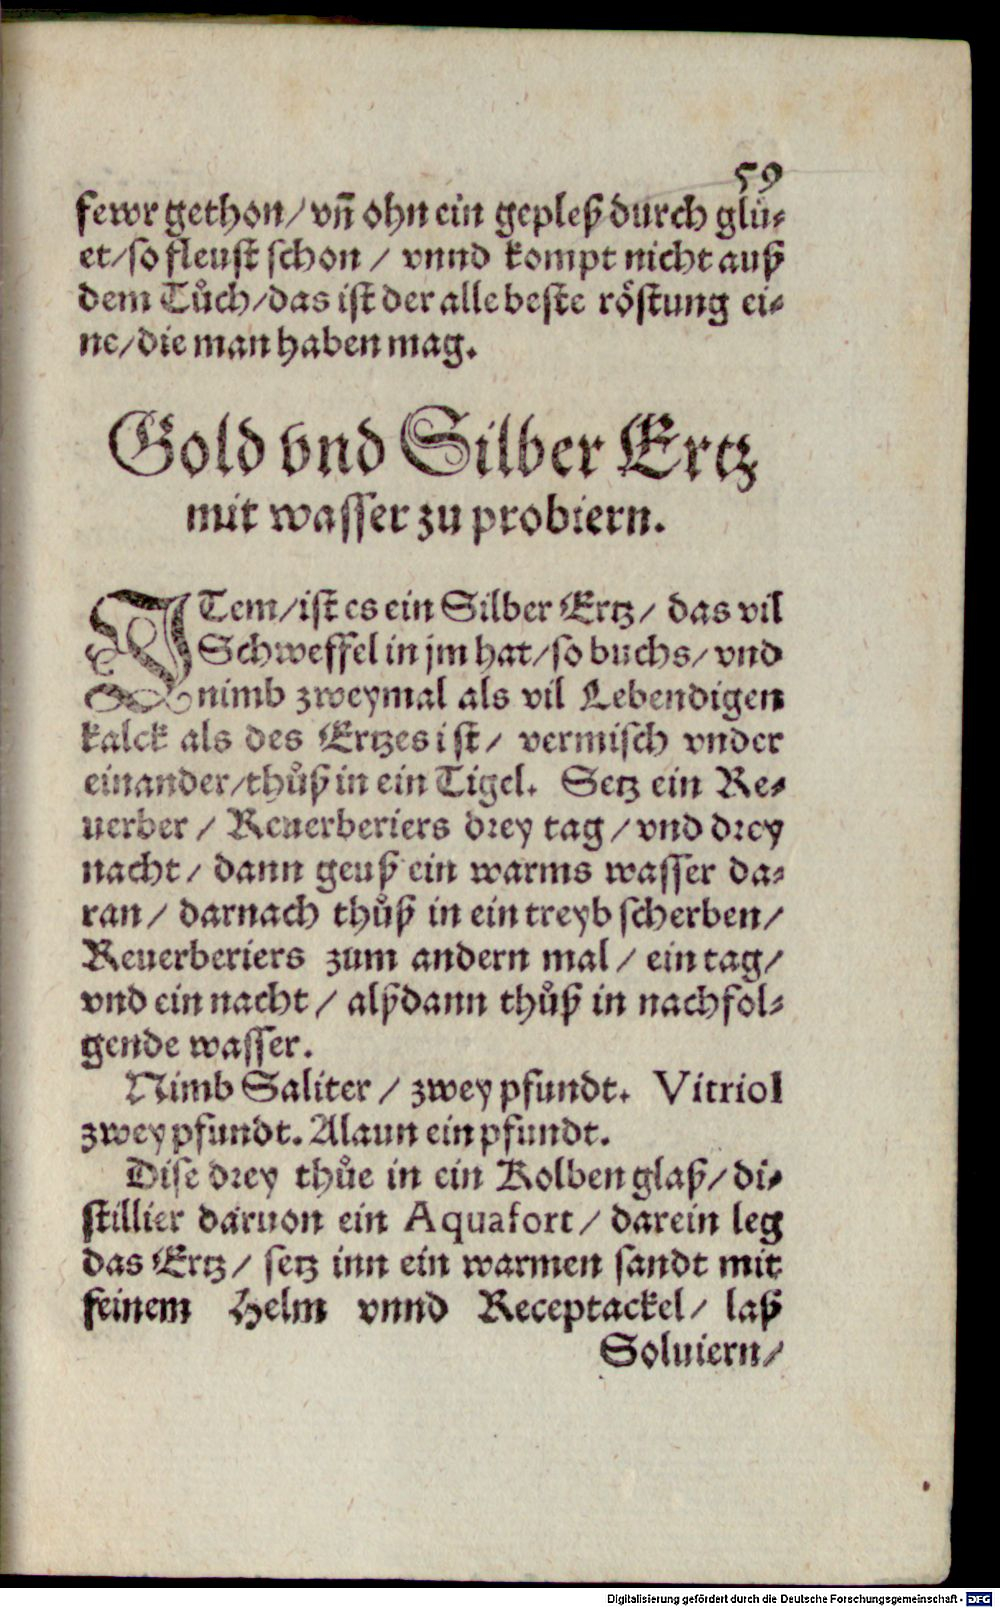 59
fewr gethon/ vñ ohn ein gepleß durch glü-
et/so fleust schon / vnnd kompt nicht auß
dem Tůch/das ist der alle beste röstung ei-
ne/die man haben mag.
Gold vnd Silber Ertz
mit wasser zu probiern.
ITem/ist es ein Silber Ertz/ das vil
Schweffel in jm hat/so buchs/ vnd
nimb zweymal als vil Lebendigen
kalck als des Ertzes ist/ vermisch vnder
einander/thůß in ein Tigel. Setz ein Re-
uerber / Reuerberiers drey tag / vnd drey
nacht / dann geuß ein warms wasser da-
ran / darnach thůß in ein treyb scherben/
Reuerberiers zum andern mal / ein tag/
vnd ein nacht / alßdann thůß in nachfol-
gende wasser.
Nimb Saliter / zwey pfundt. Vitriol
zwey pfundt. Alaun ein pfundt.
Dise drey thůe in ein Kolben glaß/ di-
stillier daruon ein Aquafort/ darein leg
das Ertz/ setz inn ein warmen sandt mit
seinem Helm vnnd Receptackel/ laß
Soluiern/
Digitalisierung gefördert durch die Deutsche Forschungsgemeinschaft - DFG